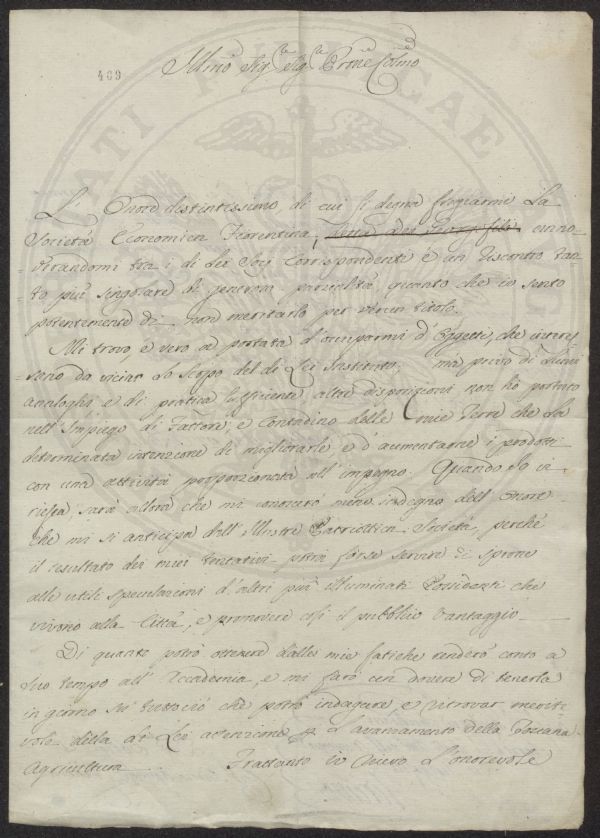 409
Illmo Sig.r Sig.r Prone Colmo
L'Onore distintissimo di cui si degna fregiarmi La
Società Economica Fiorentina, enno-
verandomi tra i di Lei Soci Corrispondenti è un riscontro tan-
to più singolare di generosa parzialità quanto che io sento
potentemente di non meritarlo per verun titolo.
Mi trovo, è vero ad portata d'occuparmi d'Oggetti, che interes-
seno da vicino Lo scopo del di Lei Instituto; ma privo di Lumi
analoghi, e di pratica sufficiente altre disposizioni non hò portato
nell'Impiego di Fattore, e Contadino delle mie Terre che La
determinata intenzione di migliorarle, e d'aumentarne i prodotti
con una attività proporzionata all'impegno. Quando Io vi
riesca, sarà allora che mi conoscerò meno indegno dell'Onore
che mi si anticipa dall'illustre Patriottica Società, perchè
il resultato dei miei tentativi potrà forse servire di sprone
alle utili speculazioni d'altri più illuminati Possidenti che
vivono alla Città, e promovere così il pubblico Vantaggio.
Di quanto potrò ottenere dalle mie fatiche renderò conto a
suo tempo all'Accademia, e mi farò un dovere di tenerla
in giorno di tuttociò che potrò indagare e ritrovar merite-
vole della di Lei attenzione p L'avanzamento della Toscana
Agricultura. Frattanto io Onoro L'onorevole